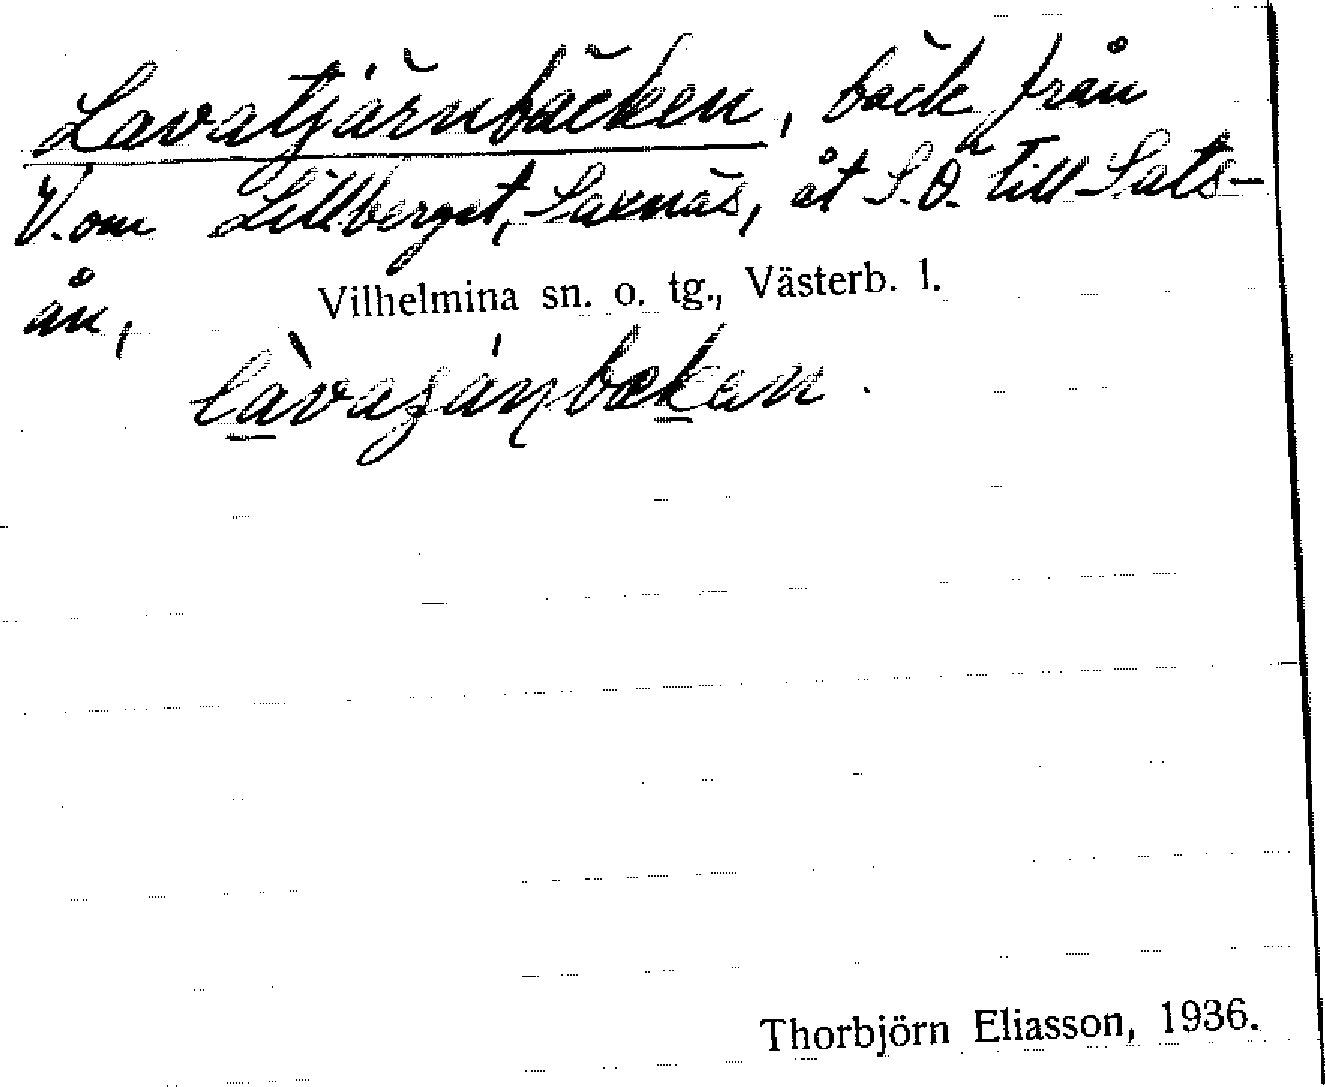 Lavatjärnbäcken, bäck från
V. om Lillberget, Saxnäs, åt S.Ö. till Sats-
ån,
Vilhelmina sn. o. tg., Västerb. l.
Thorbjörn Eliasson, 1936.